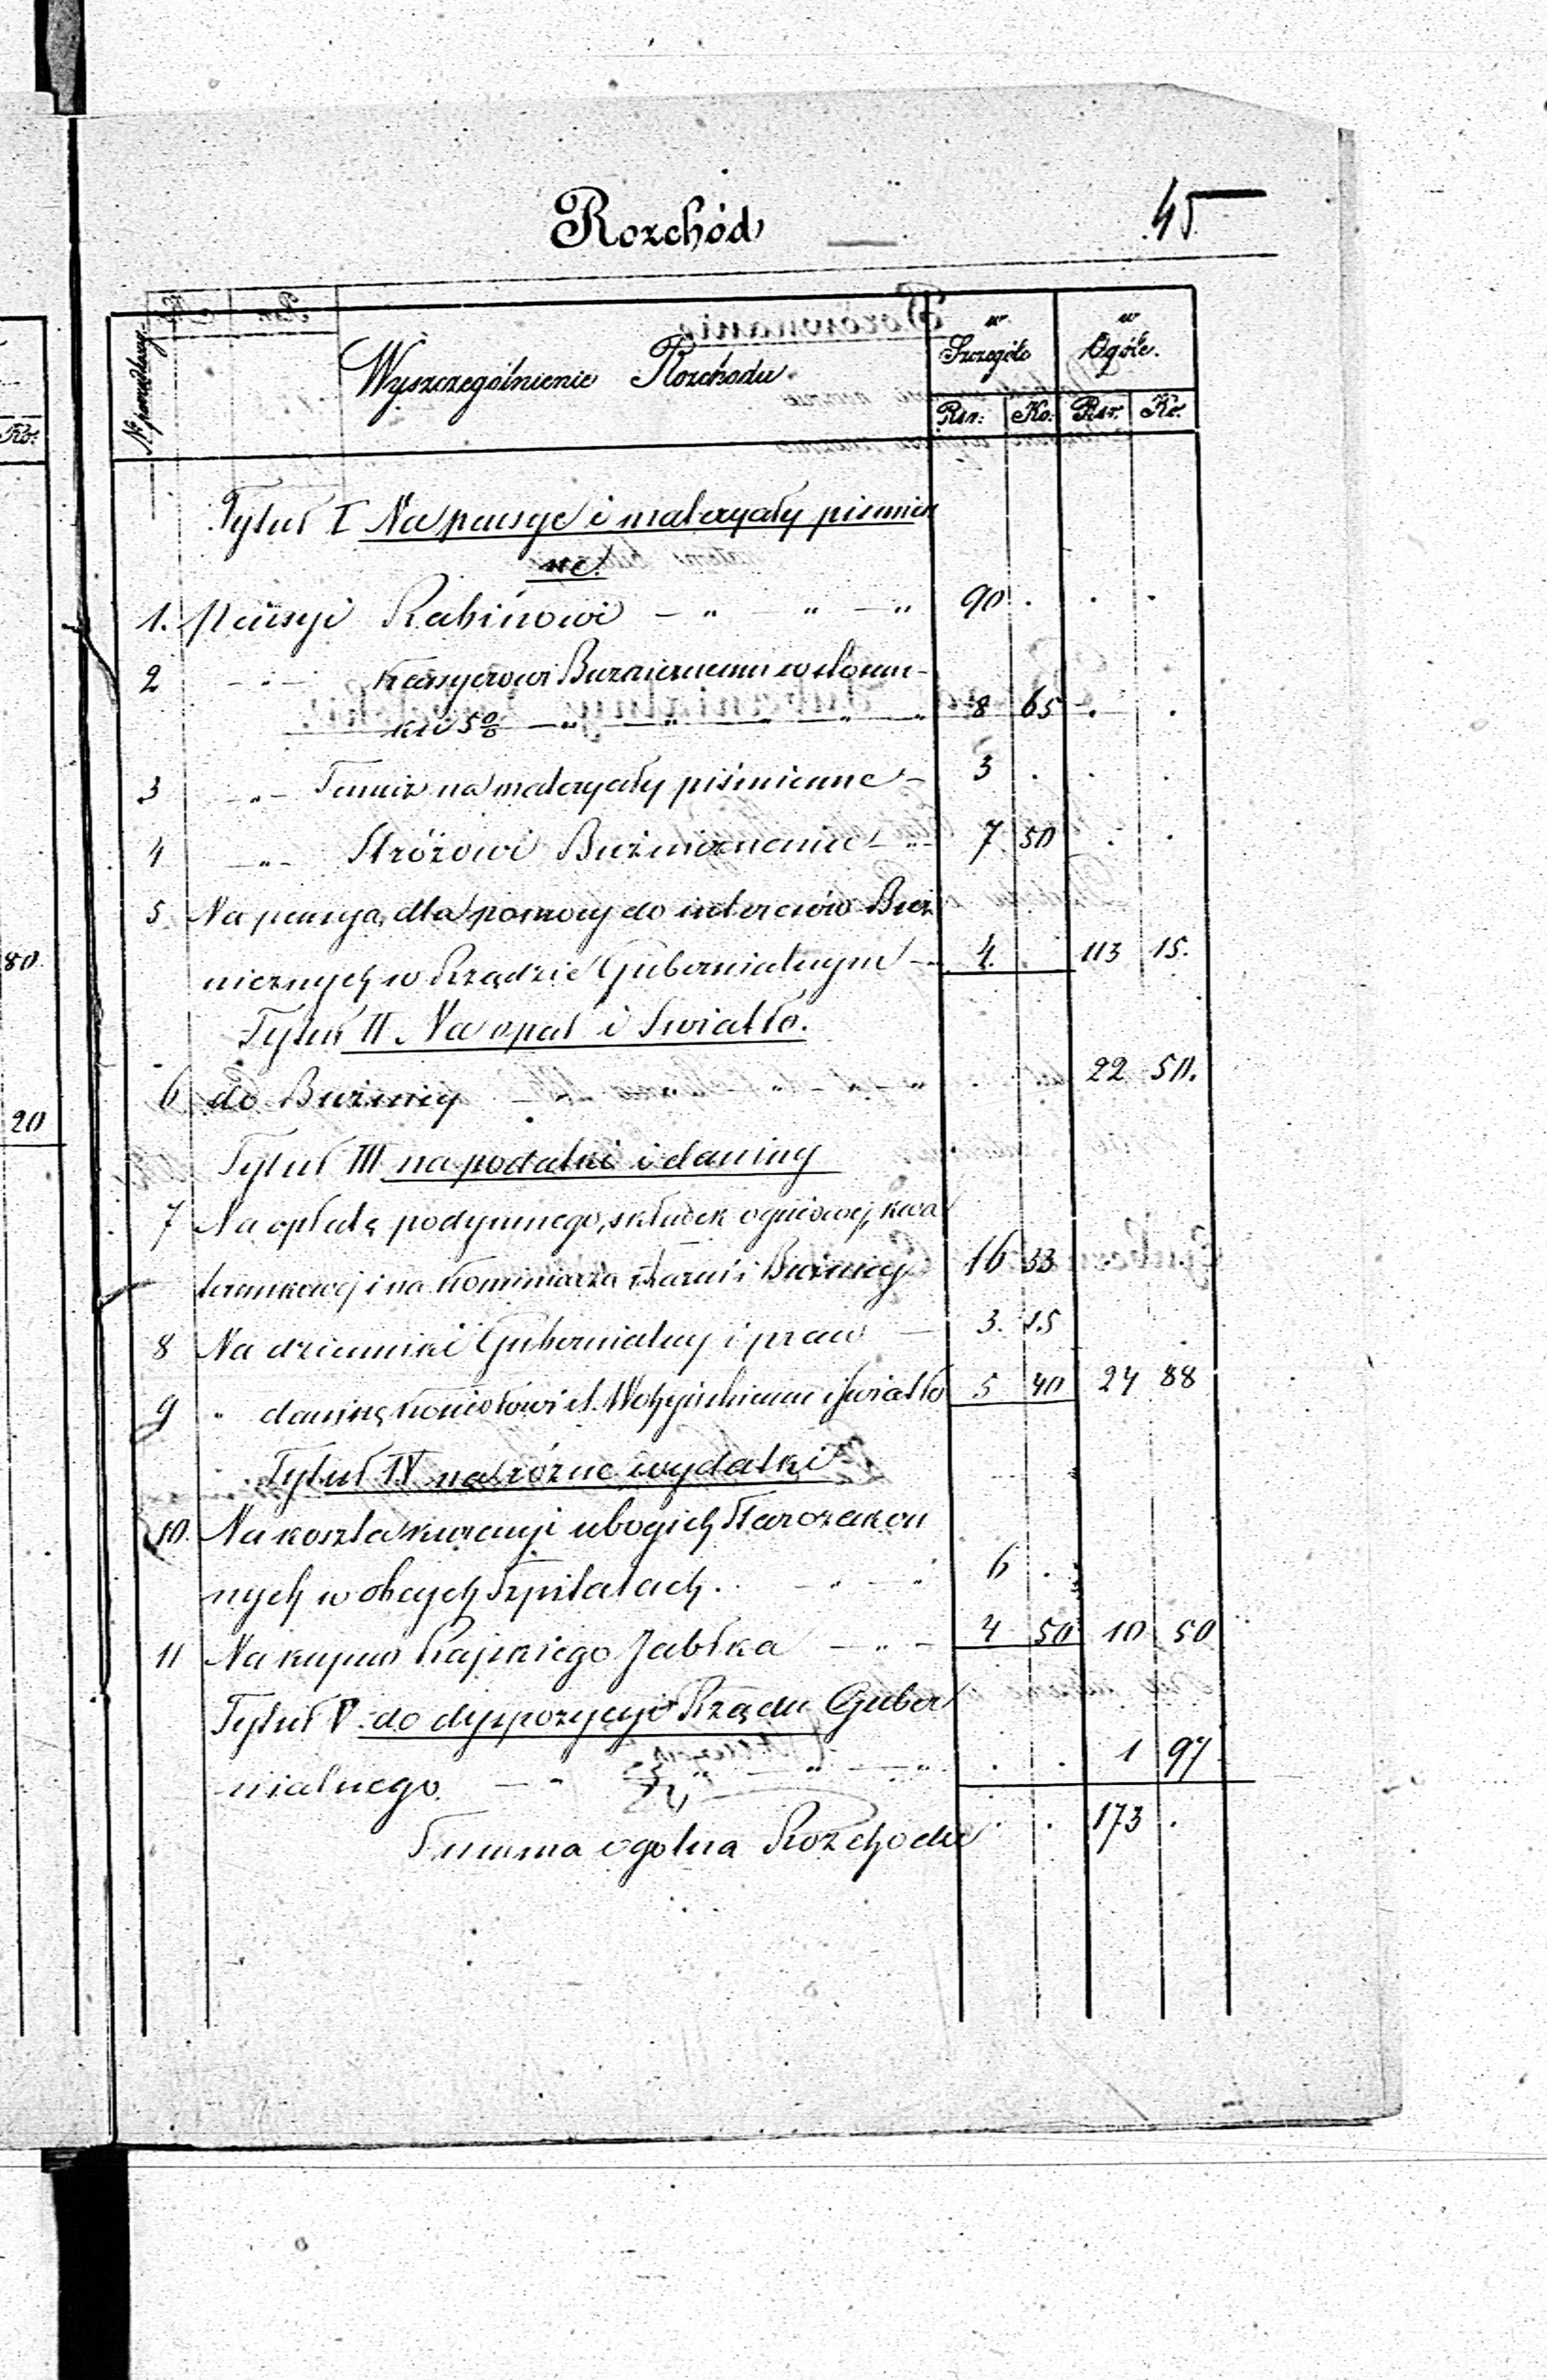 Rozchód
45
№ porządkowy
Wyszczególnienie Rozchodu
w Szczególe
w Ogóle.
Rsr: Ko: Rsr. Ko.
Ko:
Tytuł I Na pensye i materyały piśmien
ne.
1. Pensyi Rabinowi — " — " — " 90 . . .
2 — " — Kassyerowi Bużnicznemu w stosun-
ku 5% — " — " — " — " 8 65 . .
3 — " — Temuż na materyały piśmienne — 3 . . .
4 — " — Stróżowi Bużnicznemu — " — 7 50 . .
5 Na pensyą dla pomocy do interesów Buż
nicznych w Rządzie Gubernialnym — 4. . 113 15.
80.
Tytuł II. Na opał i Swiatło.
6 do Bużnicy 22 50.
20
Tytuł III na podatki i daniny
7 Na opłatę podymnego, składek ogniowej, kwa
terunkowej i na Kominiarza z Bużnicy 16 33 . .
8 Na dzienniki Gubernialny i praw — 3. 15
9 " daninę Kościołowi i światło 5 40 24 88
Tytuł IV na różne wydatki
10. Na koszta kuracyi ubogich Starozakon
nych w obcych Szpitalach. — " — " 6 .
11 Na kupno Rajskiego Jabłka — " — 4 50 10 50
Tytuł V do dyspozycyi Rządu Guber
nialnego. — " — " — " . . 1 97
Summa ogolna Rozchodu . . 173 .